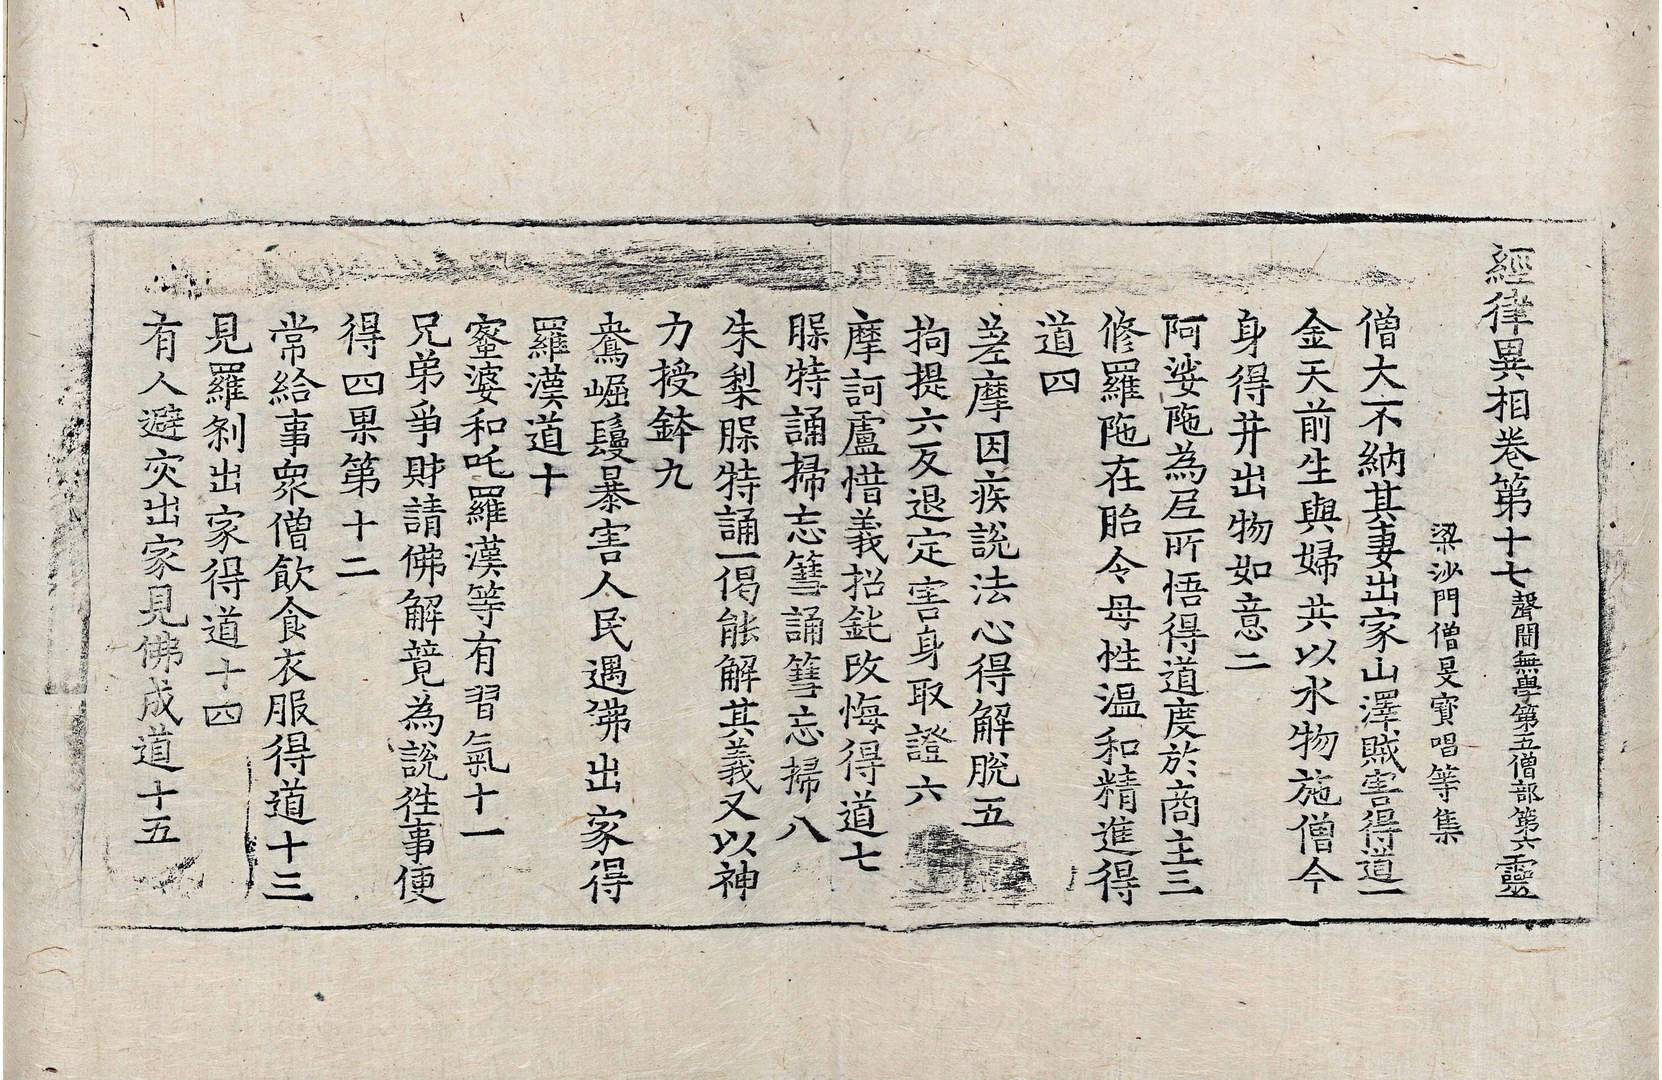 經律異相卷第十七聲聞無學第五僧部第六靈
梁沙門僧旻寶唱等集
僧大不納其妻出家山澤賊害得道一
金天前生與婦共以水物施僧今
身得井出物如意二
阿娑陁為尼所悟得道度於商主三
修羅陁在胎令母性溫和精進得
道四
差摩因疾說法心得解脫五
拘提六反退定害身取證六
摩訶盧惜義招鈍改悔得道七
䐗特誦掃忘篲誦篲忘掃八
朱梨䐗特誦一偈能解其義又以神
力授鉢九
鴦崛鬘暴害人民遇佛出家得
羅漢道十
蜜婆和吒羅漢等有習氣十一
兄弟爭財請佛解競為說往事便
得四果第十二
常給事衆僧飲食衣服得道十三
見羅刹出家得道十四
有人避灾出家見佛成道十五